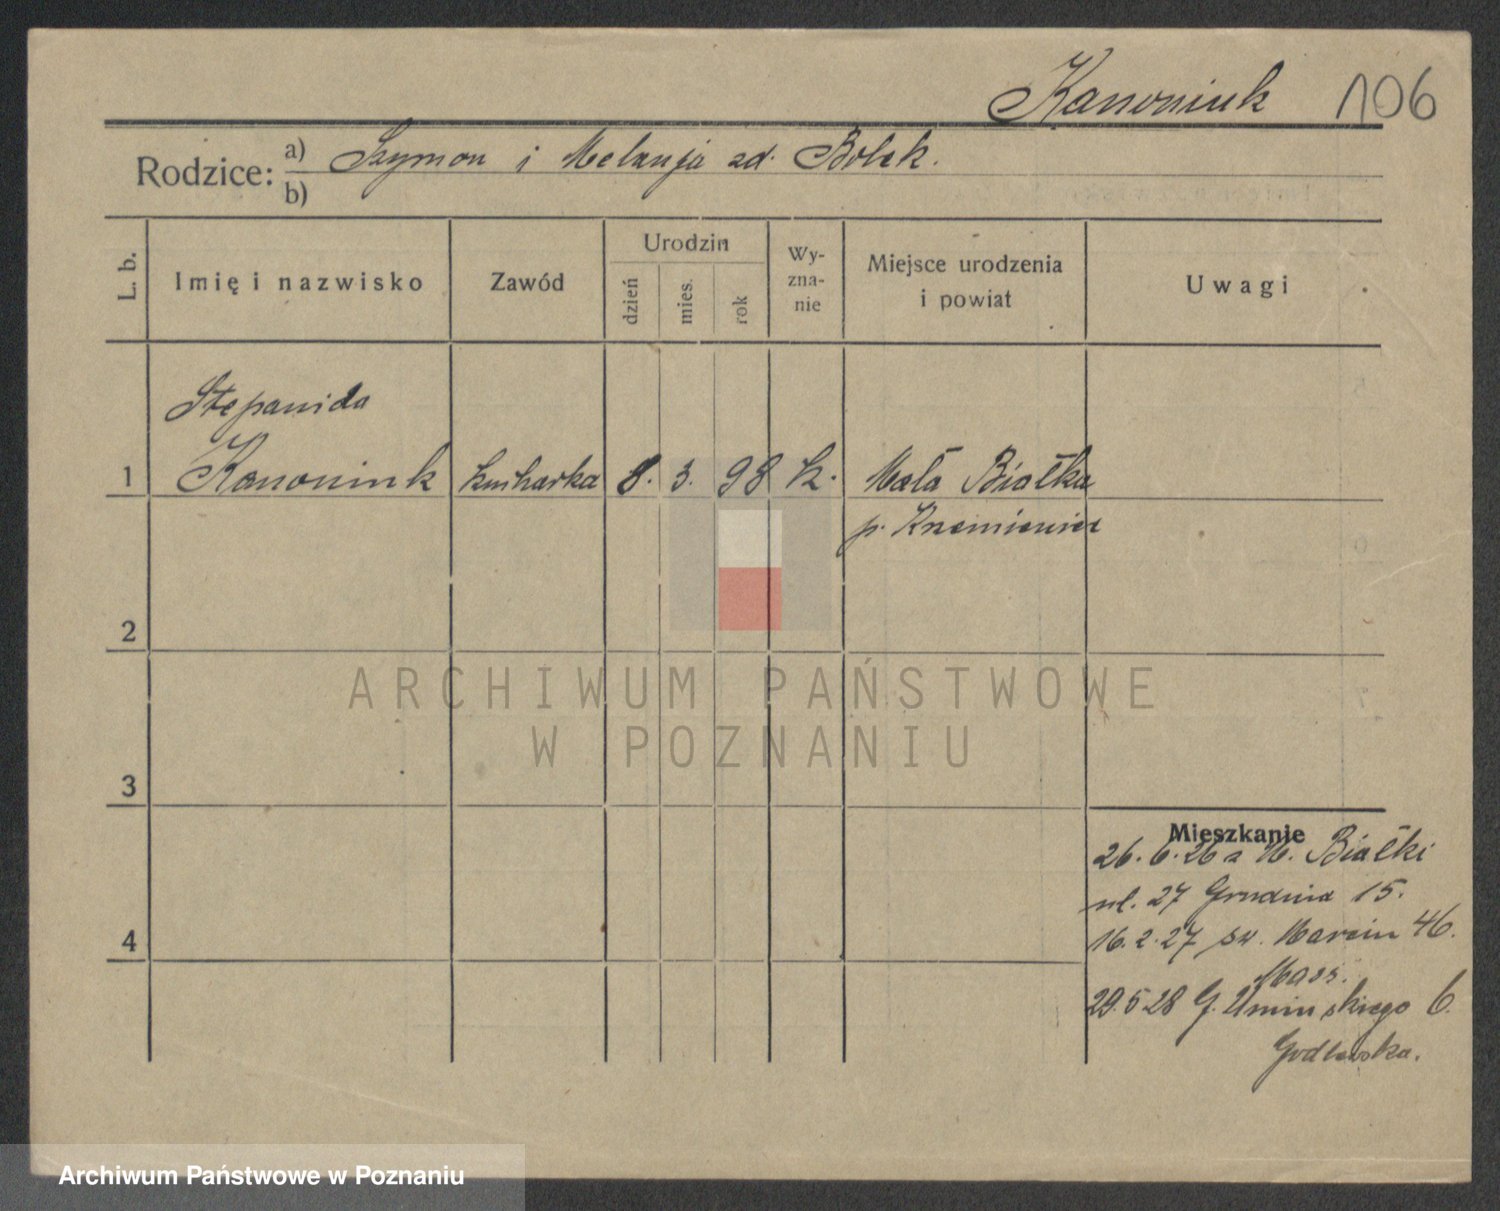 Kanoniuk 106
Rodzice: a) Szymon i Melanja zd. Bolek.
b)
L. b.
Imię i nazwisko
Zawód
Urodzin
dzień
mies.
rok
Wy-
zna-
nie
Miejsce urodzenia
i powiat
Uwagi
Stepanida
1 Kanoniuk kucharka 8. 3. 98 k. Mała Białka
p. Krzemieniec
2
3
4
Mieszkanie
26.6.26 a M. Białki
ul. 27 Grudnia 15.
16.2.27 św. Marcin 46.
Mass.
29.5 28 G. Umińskiego 6.
Godlewska.
ARCHIWUM PAŃSTWOWE
W POZNANIU
Archiwum Państwowe w Poznaniu